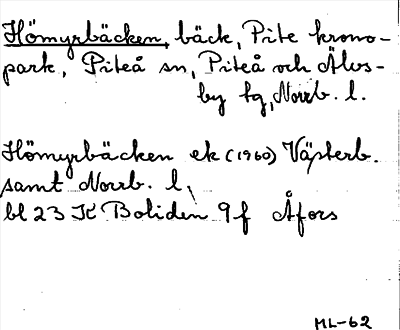 Hömyrbäcken, bäck, Pite krono-
park, Piteå sn, Piteå och Älvs-
by tg, Norrb. l.
Hömyrbäcken ek (1960) Västerb.
samt Norrb. l,
bl 23 K Boliden 9f Åfors
ML-62